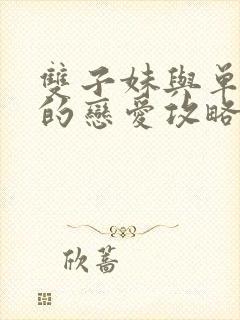 雙子妹與單
的戀愛攻略
欣蕎